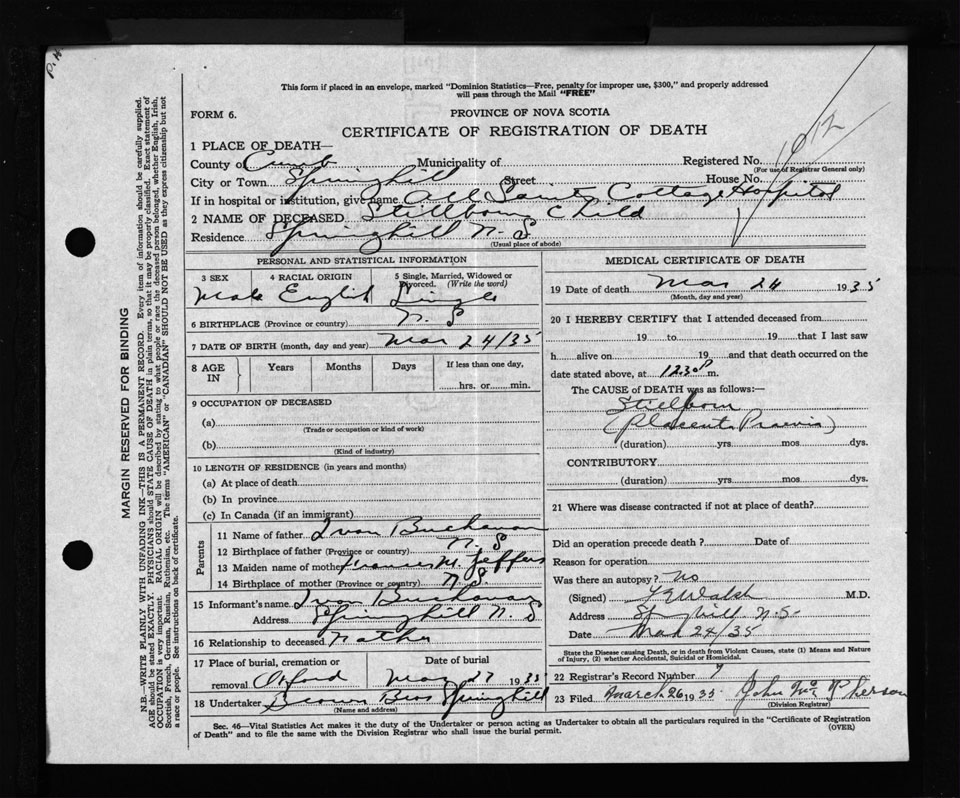 P.H
This form if placed in an envelope, marked "Dominion Statistics—Free, penalty for improper use, $300," and properly addressed
will pass through the Mail "FREE"
FORM 6.
PROVINCE OF NOVA SCOTIA
CERTIFICATE OF REGISTRATION OF DEATH
1 PLACE OF DEATH—
County of Cumb Municipality of Registered No.
(For use of Registrar General only)
City or Town Springhill Street House No.
If in hospital or institution, give name All Saints Cottage Hospital
2 NAME OF DECEASED Stillborn Child
Residence Springhill N.S
(Usual place of abode)
PERSONAL AND STATISTICAL INFORMATION
3 SEX 4 RACIAL ORIGIN 5 Single, Married, Widowed or Divorced. (Write the word)
Male English Single
6 BIRTHPLACE (Province or country) N.S
7 DATE OF BIRTH (month, day and year) Mar 24/35
8 AGE IN Years Months Days If less than one day,
hrs. or min.
9 OCCUPATION OF DECEASED
(a)
(Trade or occupation or kind of work)
(b)
(Kind of industry)
10 LENGTH OF RESIDENCE (in years and months)
(a) At place of death
(b) In province
(c) In Canada (if an immigrant)
Parents
11 Name of father Ivan Buchanan
12 Birthplace of father (Province or country) N.S
13 Maiden name of mother Frances M. Jeffers
14 Birthplace of mother (Province or country) N.S
15 Informant's name Ivan Buchanan
Address Springhill N.S
16 Relationship to deceased Father
17 Place of burial, cremation or Date of burial
removal Oxford Mar 27 1935
18 Undertaker Bros Springhill
(Name and address)
MEDICAL CERTIFICATE OF DEATH
19 Date of death Mar 24 1935
(Month, day and year)
20 I HEREBY CERTIFY that I attended deceased from
19 to 19 that I last saw
h alive on 19 and that death occurred on the
date stated above, at 12.30 P m.
The CAUSE of DEATH was as follows:—
Stillborn
(Placenta Praevia)
(duration) yrs mos dys.
CONTRIBUTORY
(duration) yrs mos dys.
21 Where was disease contracted if not at place of death?
Did an operation precede death? Date of
Reason for operation
Was there an autopsy? No
(Signed) Walsh M.D.
Address Springhill N.S.
Date Mar 24/35
State the Disease causing Death, or in death from Violent Causes, state (1) Means and Nature
of Injury, (2) whether Accidental, Suicidal or Homicidal.
22 Registrar's Record Number 7
23 Filed March 26 1935 John McPherson
(Division Registrar)
Sec. 46—Vital Statistics Act makes it the duty of the Undertaker or person acting as Undertaker to obtain all the particulars required in the "Certificate of Registration
of Death" and to file the same with the Division Registrar who shall issue the burial permit.
(OVER)
MARGIN RESERVED FOR BINDING
N.B.—WRITE PLAINLY WITH UNFADING INK—THIS IS A PERMANENT RECORD. Every item of information should be carefully supplied.
AGE should be stated EXACTLY. PHYSICIANS should STATE CAUSE OF DEATH in plain terms, so that it may be properly classified. Exact statement of
OCCUPATION is very important. RACIAL ORIGIN will be described by stating to what people or race the deceased person belonged, whether English, Irish,
Scottish, French, German, Russian, Ruthenian, etc. The terms "AMERICAN" or "CANADIAN" SHOULD NOT BE USED as they express citizenship but not
a race or people. See instructions on back of certificate.